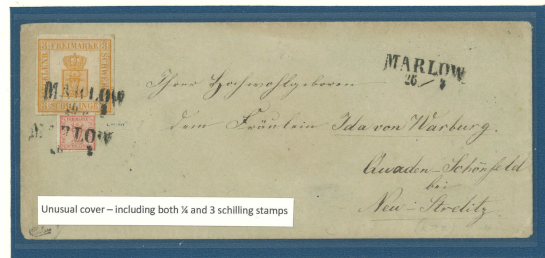 FREIMARKE
SCHILLINGE
MARLOW
26
MARLOW
MARLOW
26
Ihrer Hochwohlgeboren
dem Fräulein Ida von Warburg.
Quaden-Schönfeld
bei
Neu-Strelitz
Unusual cover – including both ¼ and 3 schilling stamps